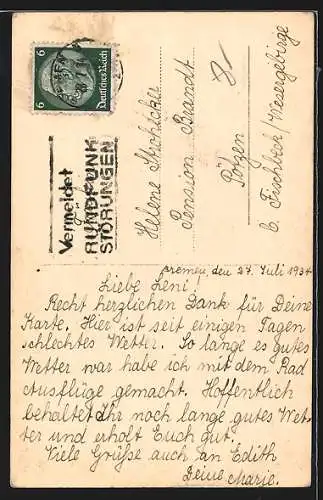 6 Deutsches Reich 6
Vermeidet
RUNDFUNK
STÖRUNGEN
Helene
Pension Brandt
Pötzen
b. Fischbeck/Wesergebirge
Bremen, den 27. Juli 1934
Liebe Leni!
Recht herzlichen Dank für Deine
Karte. Hier ist seit einigen Tagen
schlechtes Wetter. So lange es gutes
Wetter war habe ich mit dem Rad
Ausflüge gemacht. Hoffentlich
behaltet Ihr noch lange gutes Wet-
ter und erholt Euch gut.
Viele Grüße auch an Edith
Deine Marie.